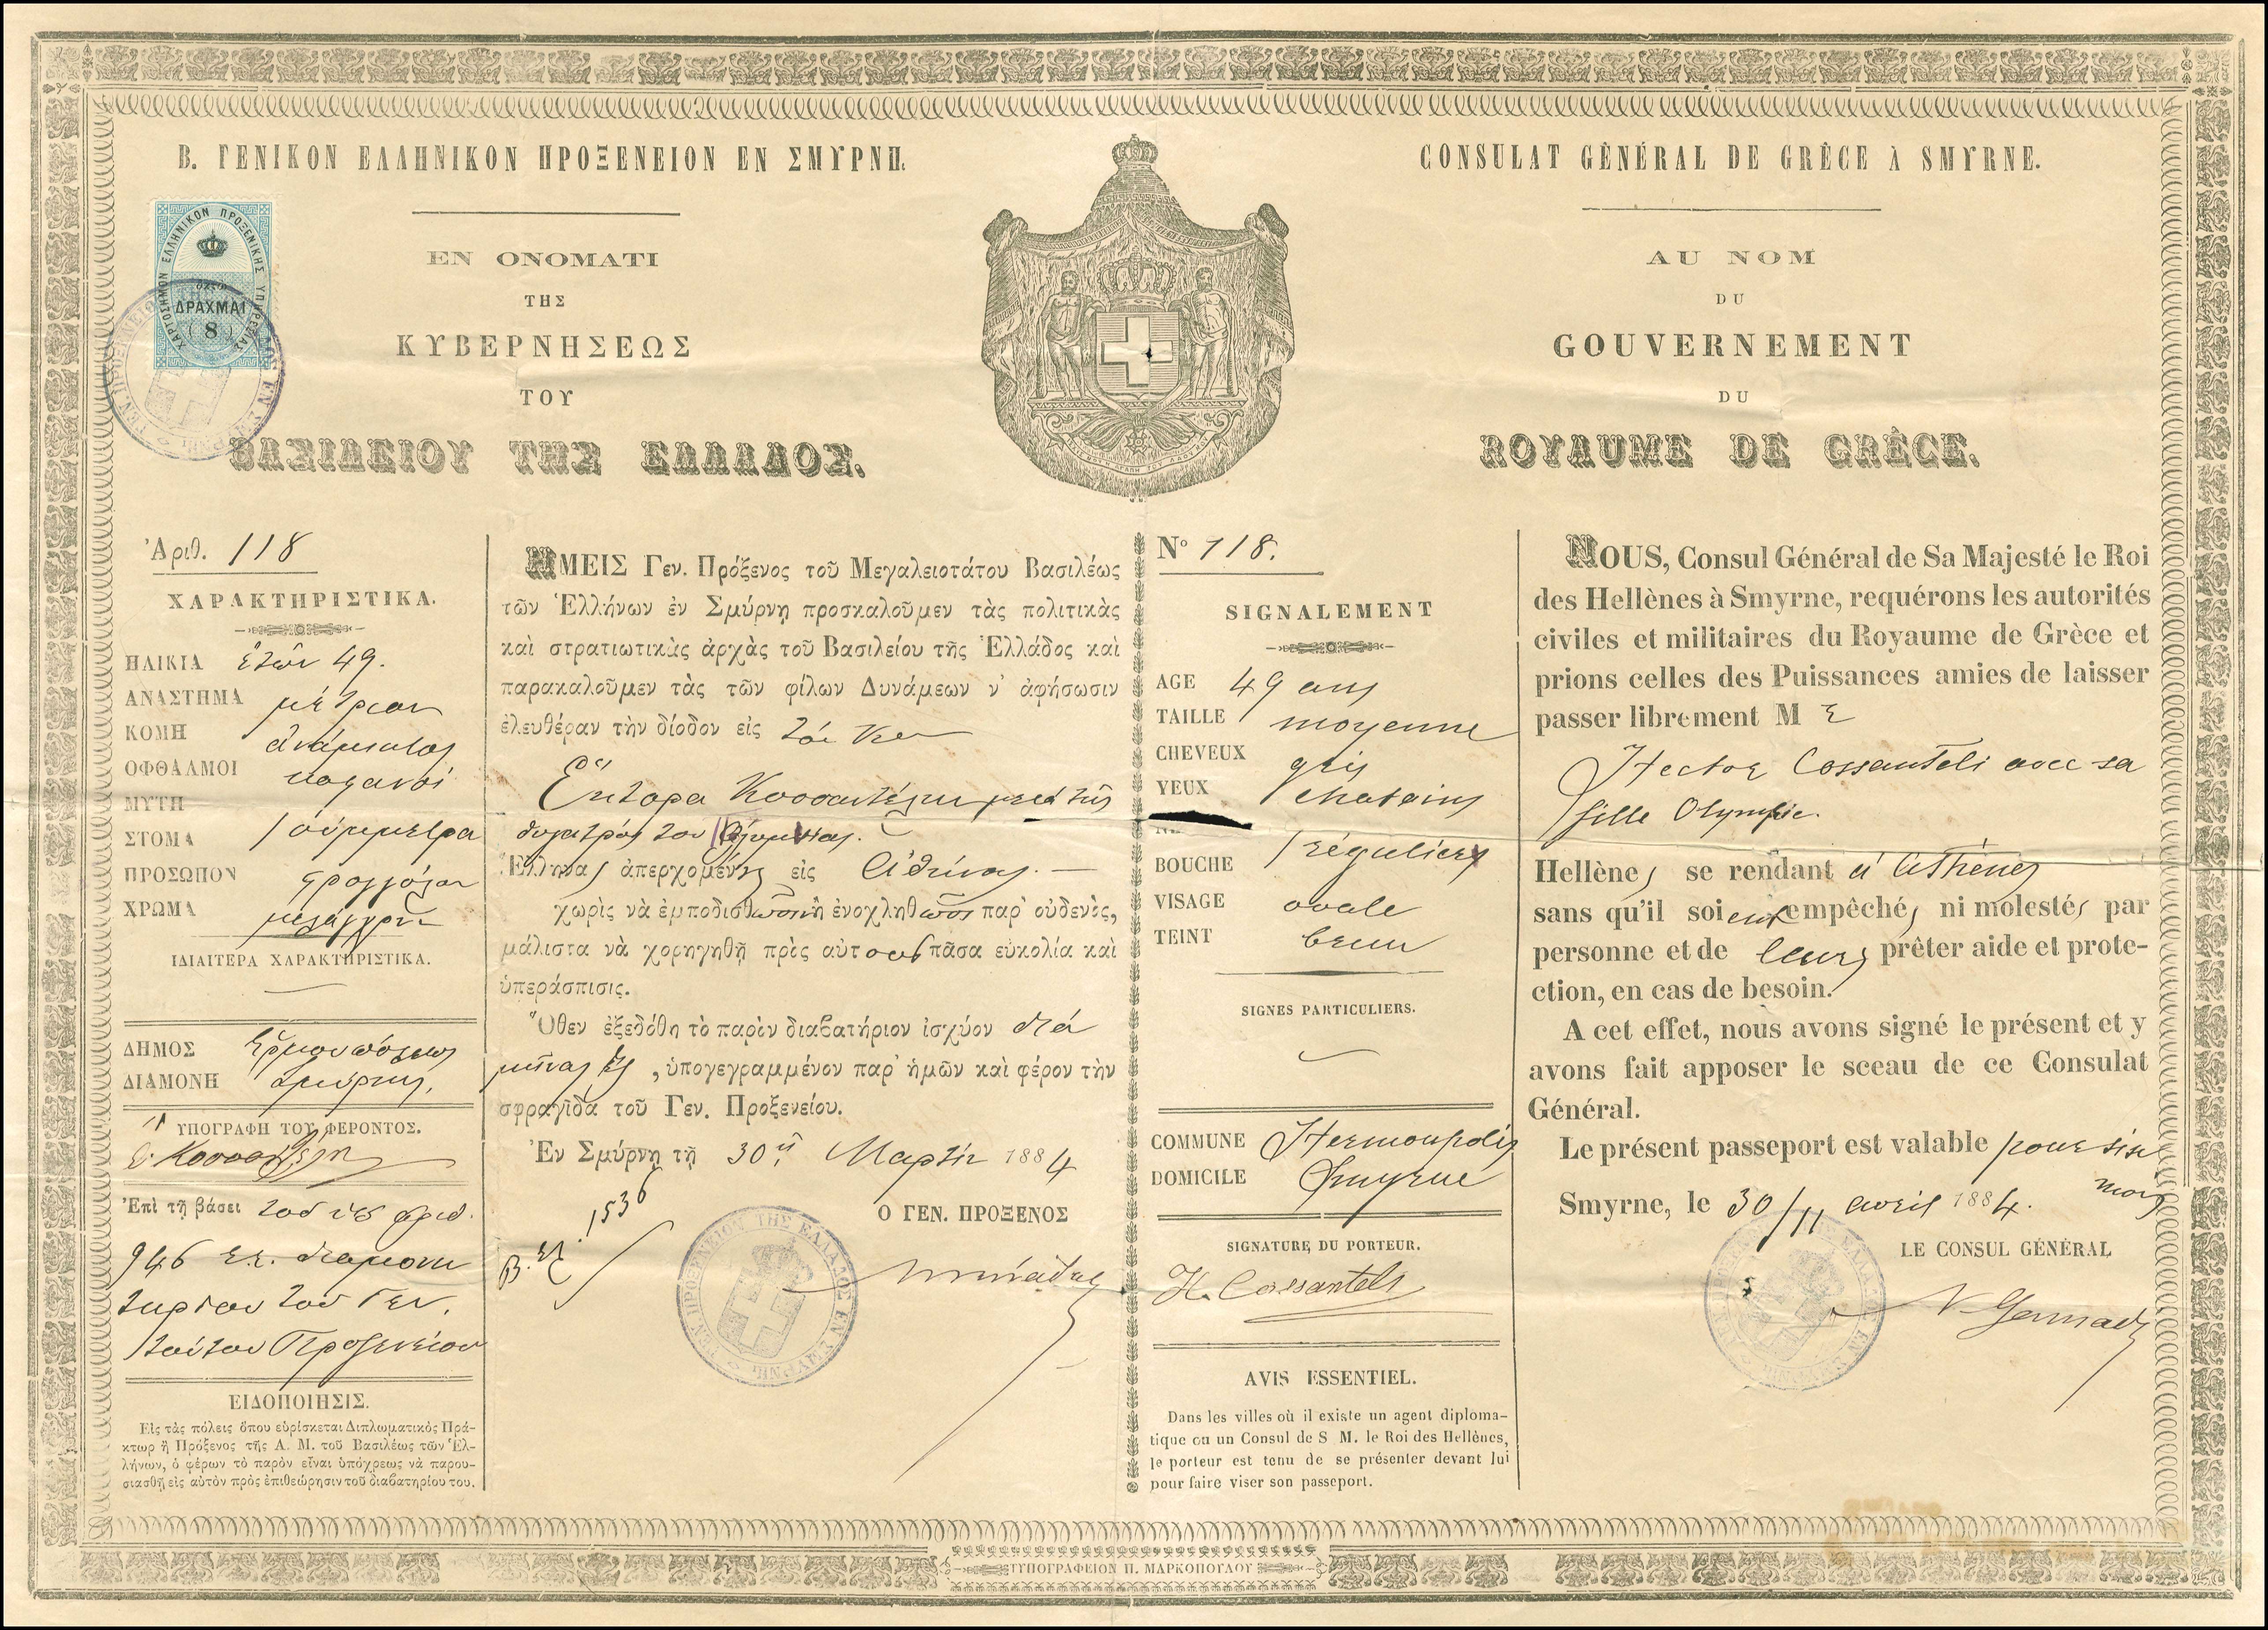 Β. ΓΕΝΙΚΟΝ ΕΛΛΗΝΙΚΟΝ ΠΡΟΞΕΝΕΙΟΝ ΕΝ ΣΜΥΡΝΗ.
ΧΑΡΤΟΣΗΜΟΝ ΕΛΛΗΝΙΚΟΝ ΠΡΟΞΕΝΙΚΗΣ ΥΠΗΡΕΣΙΑΣ
ΔΡΑΧΜΑΙ
8
ΕΝ ΟΝΟΜΑΤΙ
ΤΗΣ
ΚΥΒΕΡΝΗΣΕΩΣ
ΤΟΥ
ΒΑΣΙΛΕΙΟΥ ΤΗΣ ΕΛΛΑΔΟΣ.
CONSULAT GÉNÉRAL DE GRÈCE À SMYRNE.
AU NOM
DU
GOUVERNEMENT
DU
ROYAUME DE GRÈCE.
Ἀριθ. 118
ΧΑΡΑΚΤΗΡΙΣΤΙΚΑ.
ΗΛΙΚΙΑ ἐτῶν 49.
ΑΝΑΣΤΗΜΑ μέτριον
ΚΟΜΗ ἀνάμικτος
ΟΦΘΑΛΜΟΙ καστανοί
ΜΥΤΗ
ΣΤΟΜΑ σύμμετρα
ΠΡΟΣΩΠΟΝ στρογγύλον
ΧΡΩΜΑ μελάγχρουν
ΙΔΙΑΙΤΕΡΑ ΧΑΡΑΚΤΗΡΙΣΤΙΚΑ.
ΔΗΜΟΣ Ἑρμουπόλεως
ΔΙΑΜΟΝΗ Σμύρνης.
ΥΠΟΓΡΑΦΗ ΤΟΥ ΦΕΡΟΝΤΟΣ.
Ε. Κοσσαντέλη
Ἐπὶ τῇ βάσει τοῦ ὑπ ἀριθ.
946 διαμονη
τηρίου τοῦ Γεν.
τούτου Προξενείου
ΕΙΔΟΠΟΙΗΣΙΣ.
Εἰς τὰς πόλεις ὅπου εὑρίσκεται Διπλωματικὸς Πρά-
κτωρ ἢ Πρόξενος τῆς Α. Μ. τοῦ Βασιλέως τῶν Ἑλ-
λήνων, ὁ φέρων τὸ παρὸν εἶναι ὑπόχρεως νὰ παρου-
σιασθῇ εἰς αὐτὸν πρὸς ἐπιθεώρησιν τοῦ διαβατηρίου του.
ΗΜΕΙΣ Γεν. Πρόξενος τοῦ Μεγαλειοτάτου Βασιλέως
τῶν Ἑλλήνων ἐν Σμύρνῃ προσκαλοῦμεν τὰς πολιτικὰς
καὶ στρατιωτικὰς ἀρχὰς τοῦ Βασιλείου τῆς Ἑλλάδος καὶ
παρακαλοῦμεν τὰς τῶν φίλων Δυνάμεων ν' ἀφήσωσιν
ἐλευθέραν τὴν δίοδον εἰς τόν Κον
Ἕκτορα Κοσσαντέλην μετά τῆς
θυγατρός του Ὀλυμπίας.
Ἕλληνας ἀπερχομένους εἰς Ἀθήνας.
χωρὶς νὰ ἐμποδισθῶσιν ἢ ἐνοχληθῶσι παρ' οὐδενὸς,
μάλιστα νὰ χορηγηθῇ πρὸς αὐτοὺς πᾶσα εὐκολία καὶ
ὑπεράσπισις.
Ὅθεν ἐξεδόθη τὸ παρὸν διαβατήριον ἰσχύον διά
μῆνας ἕξ, ὑπογεγραμμένον παρ' ἡμῶν καὶ φέρον τὴν
σφραγῖδα τοῦ Γεν. Προξενείου.
Ἐν Σμύρνῃ τῇ 30ῃ Μαρτίου 1884
1536
Ο ΓΕΝ. ΠΡΟΞΕΝΟΣ
No 118.
SIGNALEMENT
AGE 49 ans
TAILLE moyenne
CHEVEUX gris
YEUX chatains
BOUCHE réguliers
VISAGE ovale
TEINT brun
SIGNES PARTICULIERS.
COMMUNE Hermoupolis
DOMICILE Smyrne
SIGNATURE DU PORTEUR.
H. Cossanteli
AVIS ESSENTIEL.
Dans les villes où il existe un agent diploma-
tique ou un Consul de S M. le Roi des Hellènes,
le porteur est tenu de se présenter devant lui
pour faire viser son passeport.
NOUS, Consul Général de Sa Majesté le Roi
des Hellènes à Smyrne, requérons les autorités
civiles et militaires du Royaume de Grèce et
prions celles des Puissances amies de laisser
passer librement M r
Hector Cossanteli avec sa
fille Olympie.
Hellènes se rendant à Athènes
sans qu'il soient empêchés ni molestés par
personne et de leurs prêter aide et prote-
ction, en cas de besoin.
A cet effet, nous avons signé le présent et y
avons fait apposer le sceau de ce Consulat
Général.
Le présent passeport est valable pour six
mois
Smyrne, le 30/11 avril 1884.
LE CONSUL GÉNÉRAL
N Gennadis
ΤΥΠΟΓΡΑΦΕΙΟΝ Π. ΜΑΡΚΟΠΟΥΛΟΥ